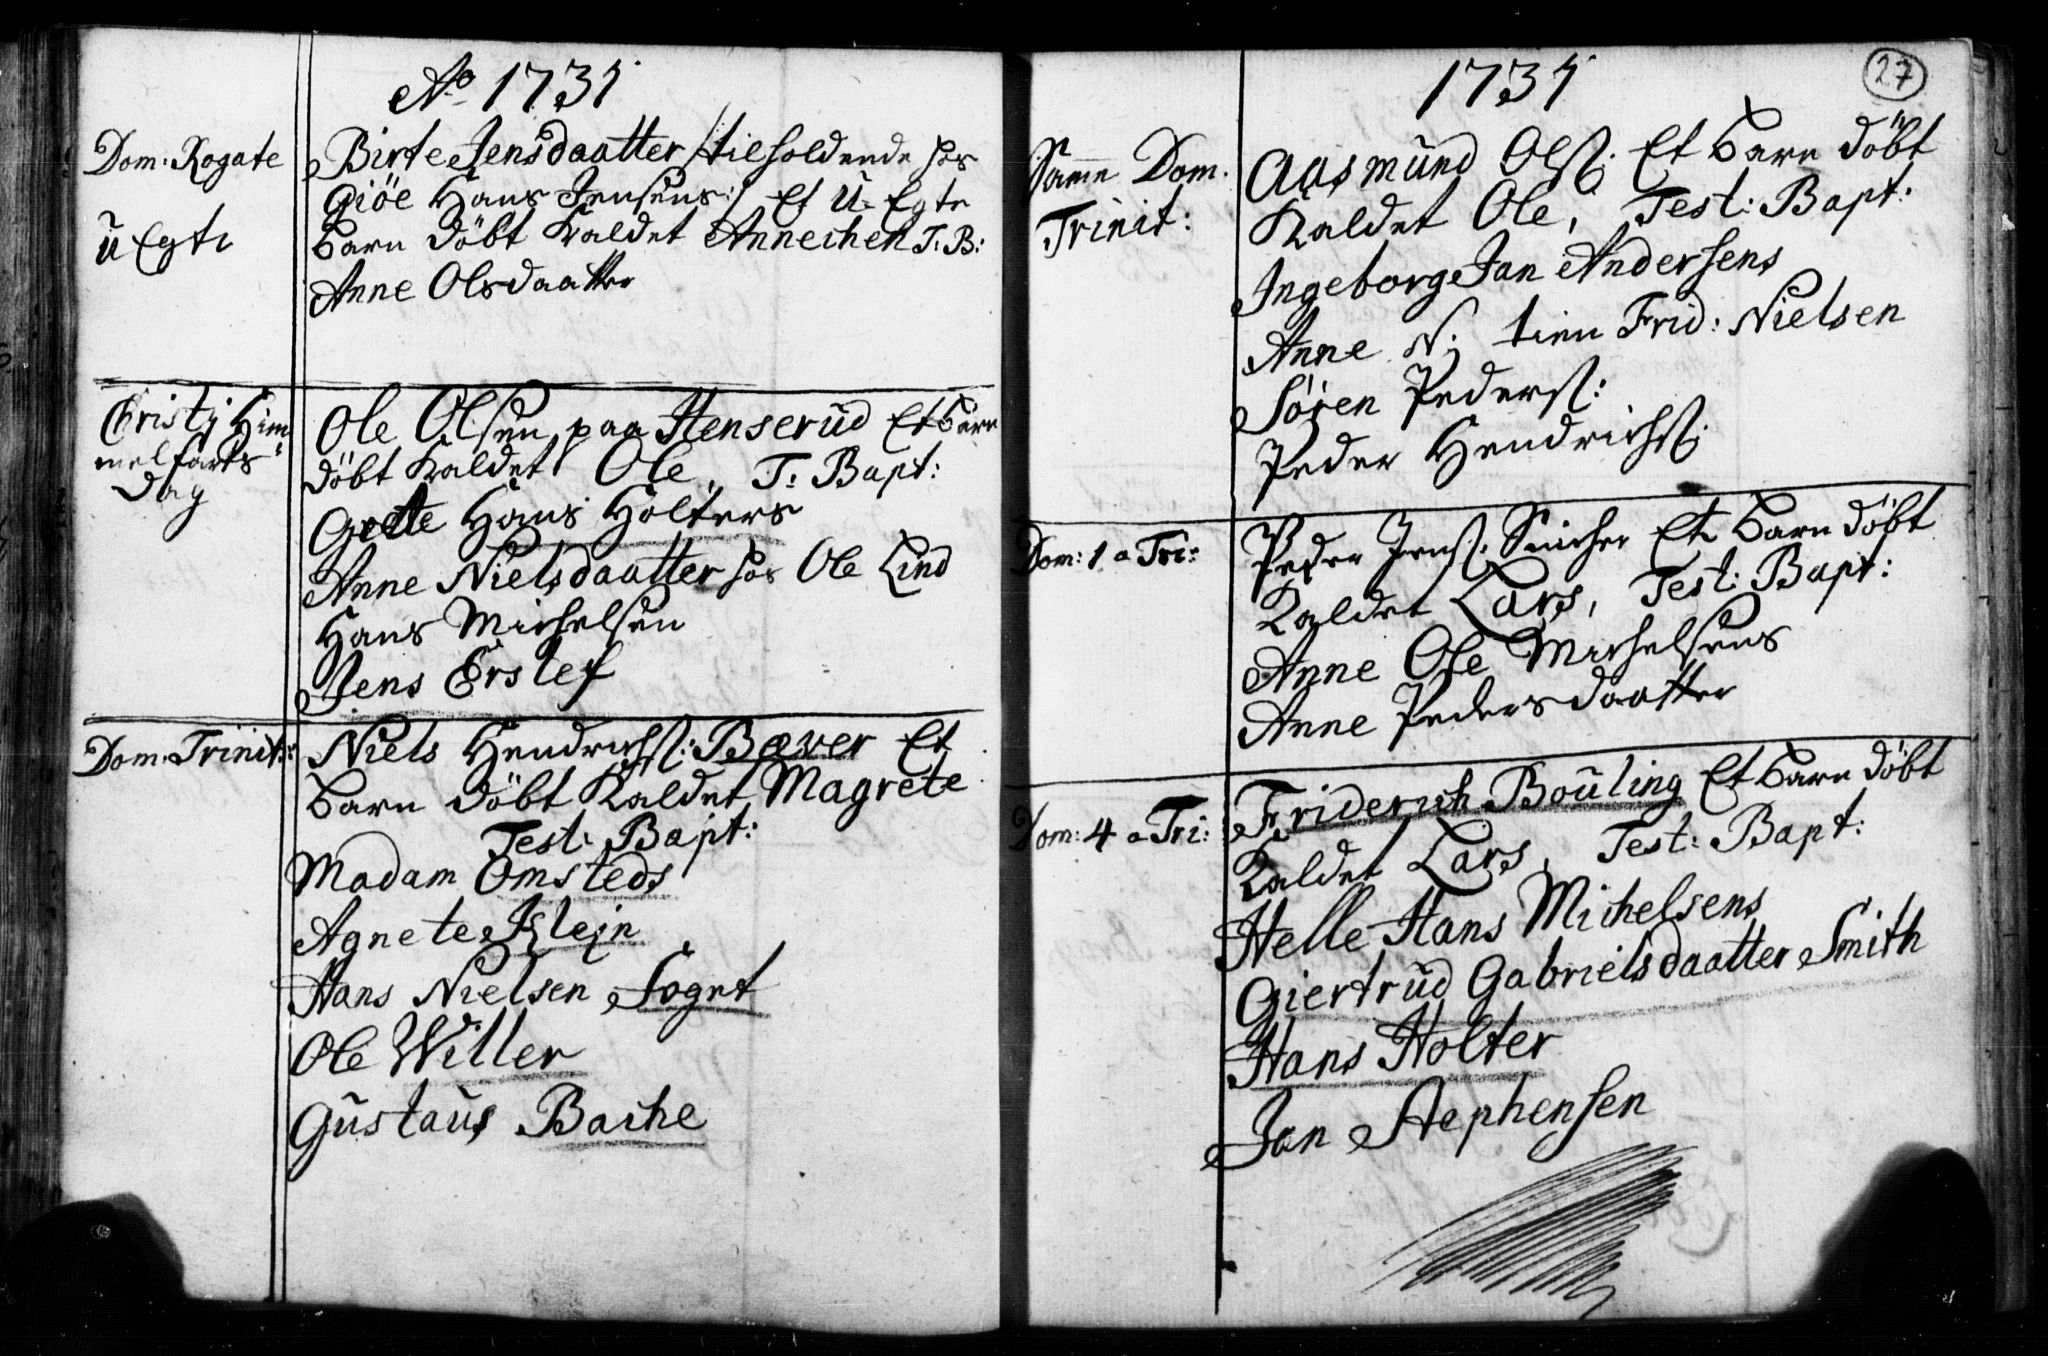 Ao 1731
Dom: Rogate
U Egte
Birte Jensdaatter /: tilholdende hos
Giöe Hans Jensens :/ Et U-Egte
barn döbt kaldet Annechen T: B:
Anne Olsdaatter
Christj Him
melfarts
Dag
Ole Olsen paa Henserud Et barn
döbt kaldet Ole, T: Bapt:
Grette Hans Holters
Anne Nielsdaatter hos Ole Lind
Hans Michelsen
Jens Erslef
Dom: Trinit:
Niels Hendrichs: Bæver Et
barn döbt kaldet Magrete
Test: Bapt:
Madam Omsteds
Agnete Klein
Hans Nielsen Fogt
Ole Willer
Gustaus Bache
1731
27
Samme Dom.
Trinit:
Aasmund Ols: Et barn döbt
kaldet Ole, Test: Bapt:
Ingeborg Jan Andersens
Anne N: tien Frid: Nielsen
Sören Peders:
Peder Hendrichs:
Dom: 1 a Tri:
Peder Jens: Snicher Et barn döbt
kaldet Lars, Test: Bapt:
Anne Ole Michelsens
Anne Pedersdaatter
Dom: 4 a Tri:
Friderich Bouling Et barn döbt
kaldet Lars, Test: Bapt:
Helle Hans Michelsens
Giertrud Gabrielsdaatter Smith
Hans Holter
Jan Stephensen